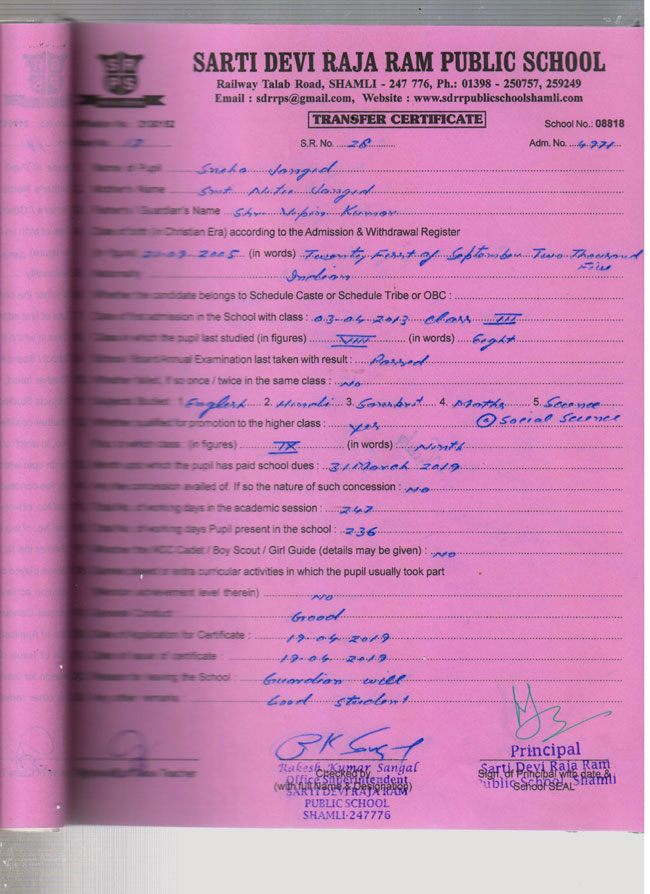 SARTI DEVI RAJA RAM PUBLIC SCHOOL
Railway Talab Road, SHAMLI - 247 776, Ph.: 01398 - 250757, 259249
Email : sdrrps@gmail.com, Website : www.sdrrpublicschoolshamli.com
TRANSFER CERTIFICATE
School No.: 08818
S.R. No. 28 Adm. No. 4771
Name of Pupil Sneha Jangid
Mother's Name Smt Nitu Jangid
Father's / Guardian's Name Shri Vipin Kumar
Date of birth (in Christian Era) according to the Admission & Withdrawal Register
21-09-2005 (in words) Twenty First of September Two Thousand Five
Indian
Whether the candidate belongs to Schedule Caste or Schedule Tribe or OBC :
Date of first admission in the School with class : 03-04-2013 Class III
Class in which the pupil last studied (in figures) VIII (in words) Eight
Board/Annual Examination last taken with result : Passed
Whether failed, if so once / twice in the same class : No
1. English 2. Hindi 3. Sanskrit 4. Maths 5. Science
6 Social Science
Whether qualified for promotion to the higher class : Yes
to which class : (in figures) IX (in words) Ninth
Month upto which the pupil has paid school dues : 31 March 2019
concession availed of. If so the nature of such concession : No
Total No. of working days in the academic session : 247
Total No. of working days Pupil present in the school : 236
Whether the NCC Cadet / Boy Scout / Girl Guide (details may be given) : No
extra curricular activities in which the pupil usually took part
achievement level therein) No
General Conduct : Good
Date of Application for Certificate : 19-04-2019
Date of issue of certificate : 19-04-2019
Reason for leaving the School : Guardian will
Any other remarks : Good student
Rakesh Kumar Sangal
Checked by
Office Superintendent
(with full Name & Designation)
SARTI DEVI RAJA RAM
PUBLIC SCHOOL
SHAMLI-247776
Principal
Sarti Devi Raja Ram
Sign. of Principal with date &
Public School, Shamli
School SEAL